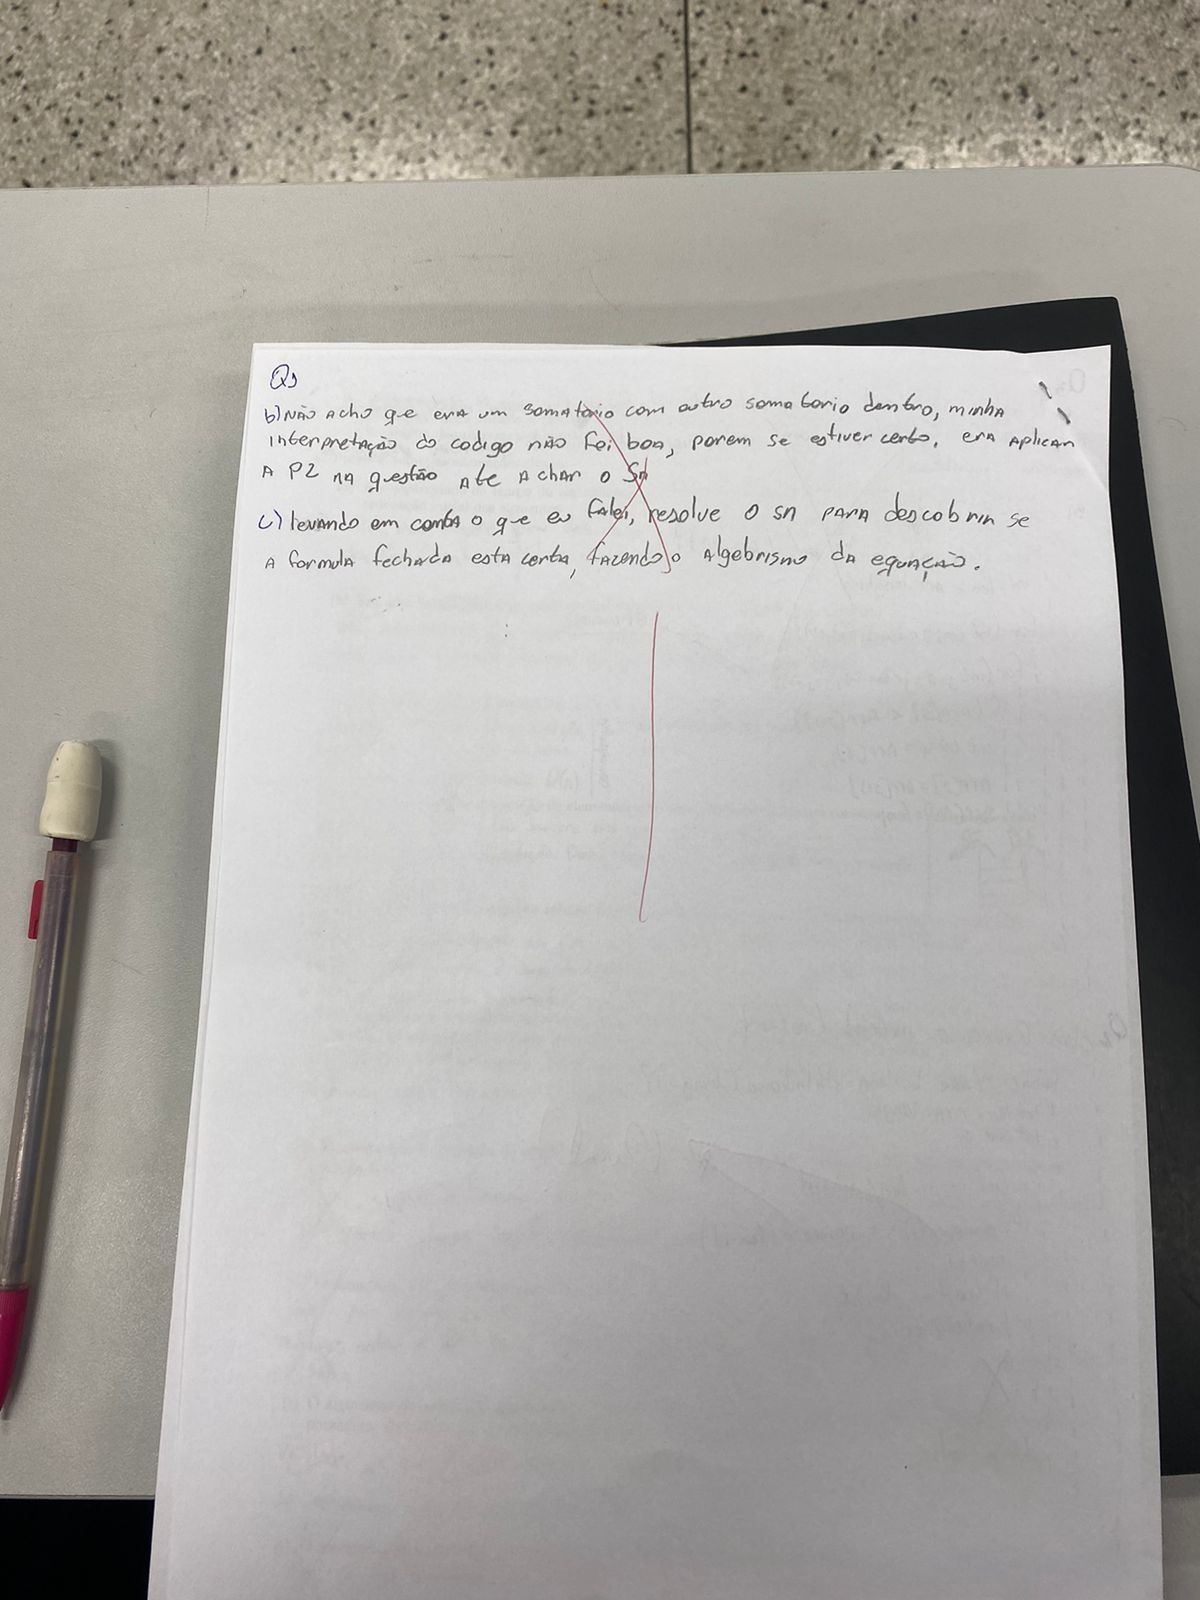 Q3
b) Não acho que era um somatorio com outro somatorio dentro, minha
interpretação do codigo não foi boa, porem se estiver certo, era aplicar
a P2 na questão ate achar o Sn
c) levando em conta o que eu falei, resolve o sn para descobrir se
a formula fechada esta certa, fazendo o algebrismo da equação.